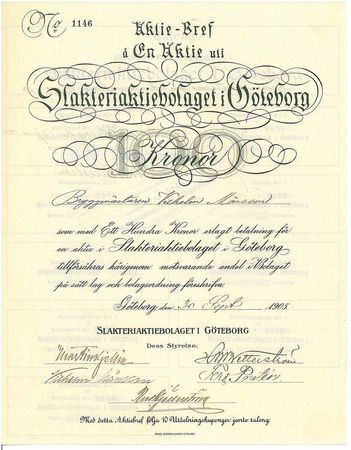 No 1146
Aktie-Bref
å En Aktie uti
Slakteriaktiebolaget i Göteborg
100
Kronor
Byggmästaren Vilhelm Månsson
som med Ett Hundra Kronor erlagt betalning för
en aktie i Slakteriaktiebolaget i Göteborg
tillförsäkras härigenom motsvarande andel i Bolaget
på sätt lag och bolagsordning föreskrifva.
Göteborg den 30 Sept. 1905
SLAKTERIAKTIEBOLAGET I GÖTEBORG
Dess Styrelse:
Med detta Aktiebref följa 10 Utdelningskuponger jemte talong.